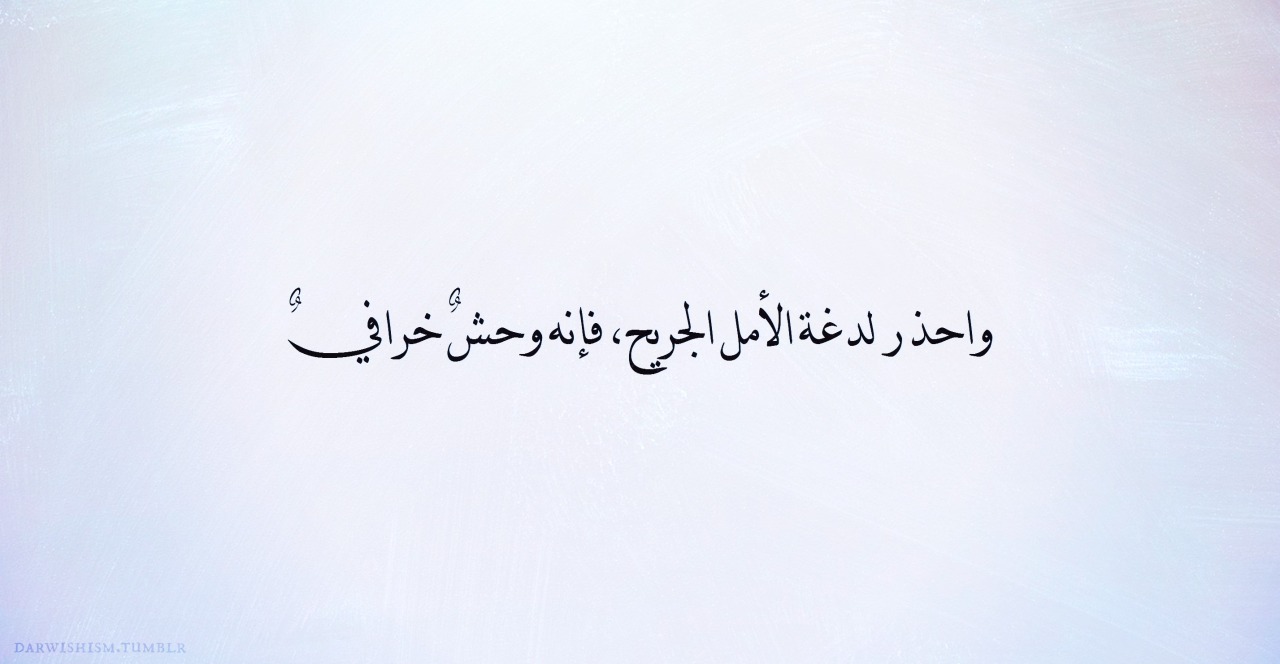 واحذر لدغة الأمل الجريح، فإنه وحشٌ خرافيٌ
DARWISHISM.TUMBLR